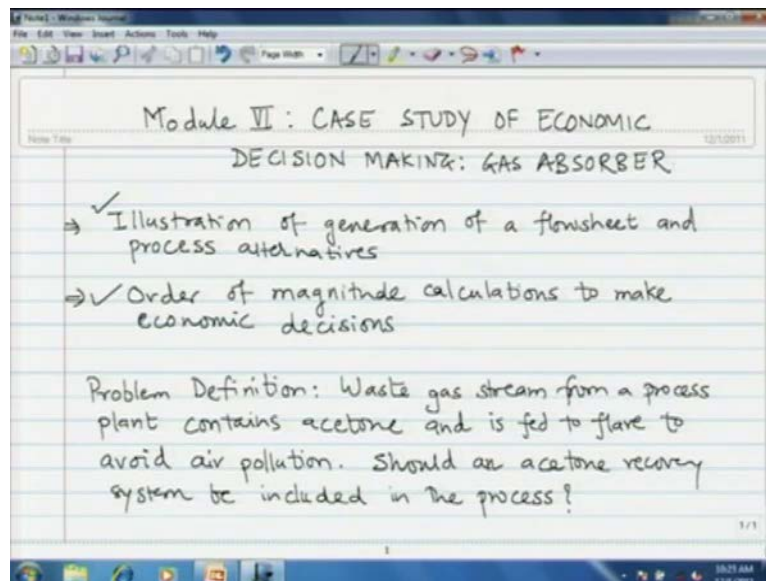 Note1 - Windows Journal
File Edit View Insert Actions Tools Help
Page Width
Module VI : CASE STUDY OF ECONOMIC
Note Title
12/1/2011
DECISION MAKING: GAS ABSORBER
⇒ ✓ Illustration of generation of a flowsheet and
process alternatives
⇒ ✓ Order of magnitude calculations to make
economic decisions
Problem Definition: Waste gas stream from a process
plant contains acetone and is fed to flare to
avoid air pollution. Should an acetone recovery
system be included in the process?
1/1
1
10:21 AM